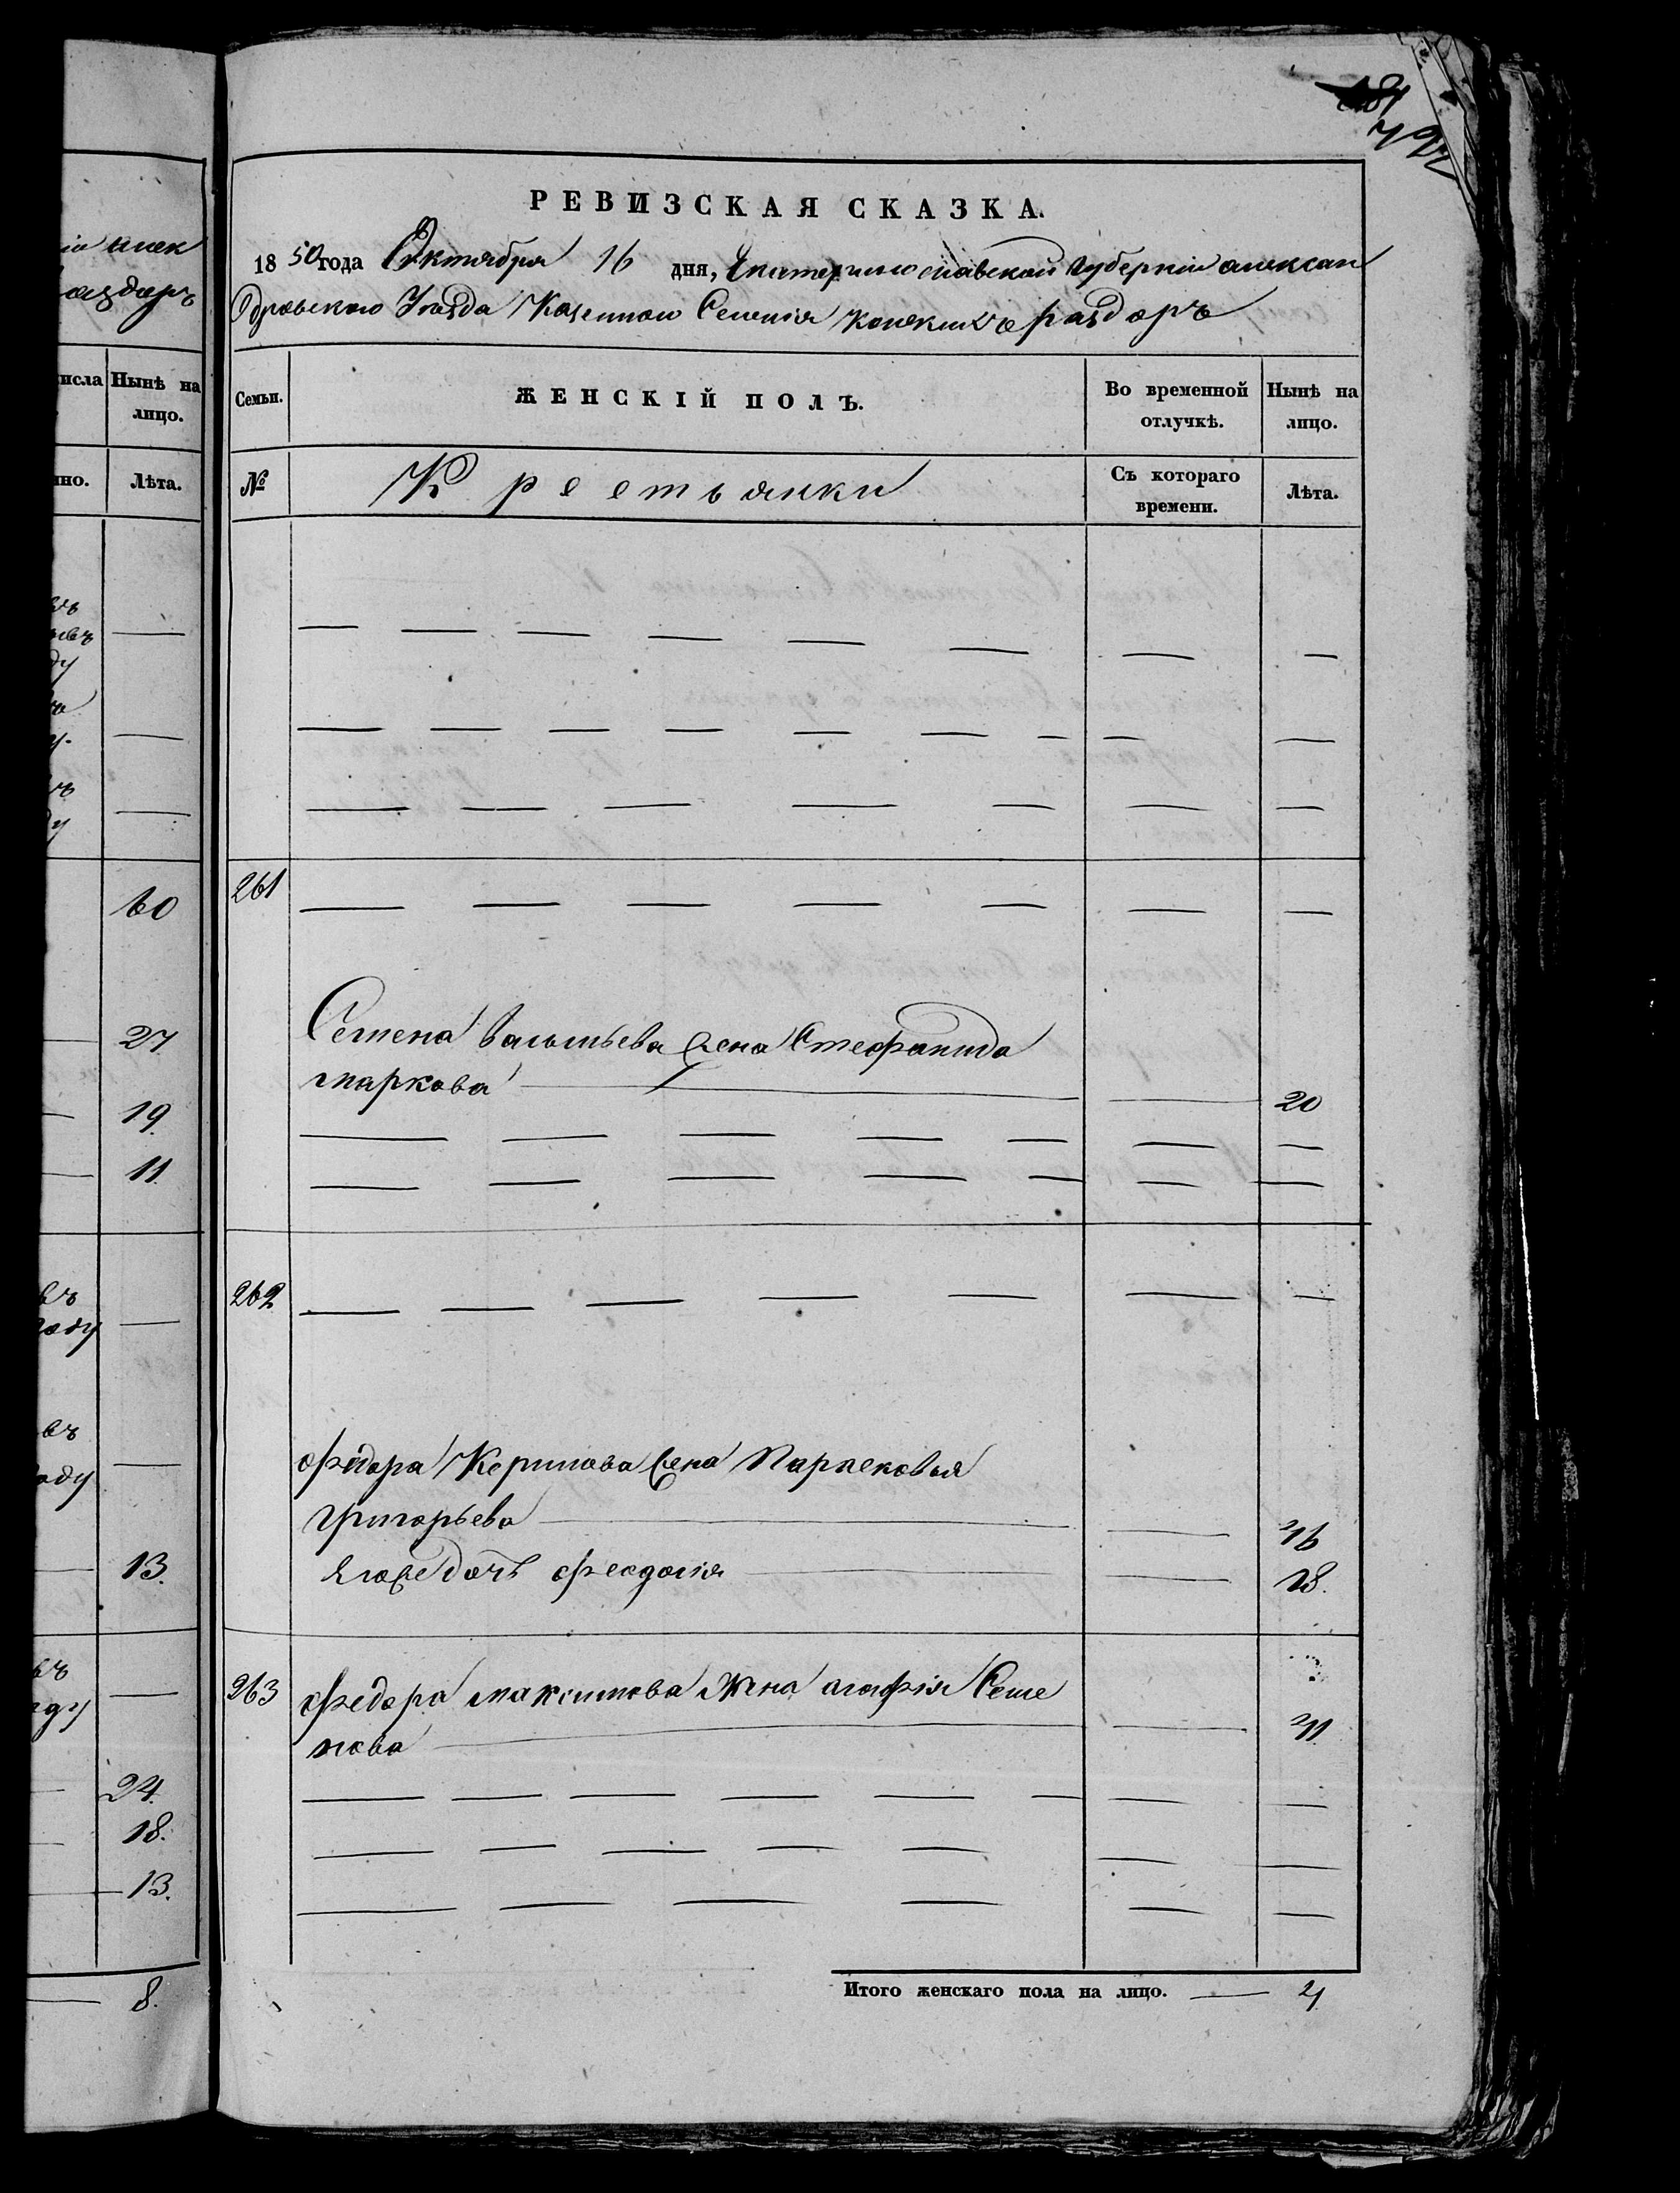 РЕВИЗСКАЯ СКАЗКА.
1850 года Октября 16 дня, Екатеринославской губерніи алексан
дровскаго Уѣзда Казенного Селенія конскихъ раздоръ
Семьи. ЖЕНСКІЙ ПОЛЪ. Во временной отлучкѣ. Нынѣ на лицо.
№ Крестьянки Съ котораго времени. Лѣта.
261
Семена васильева жена Стефанида
маркова 20
262
федора Карпова жена Парасковья
григорьева 46
Его же дочь феодосія 18.
263 федора максимова жена агафія Семе
нова 41
Итого женскаго пола на лицо. 4
іи алек
раздоръ
числа Нынѣ на лицо.
но. Лѣта.
въ
ду
60
27
19.
11.
въ
году
въ
году
13.
въ
24.
18.
13.
8.